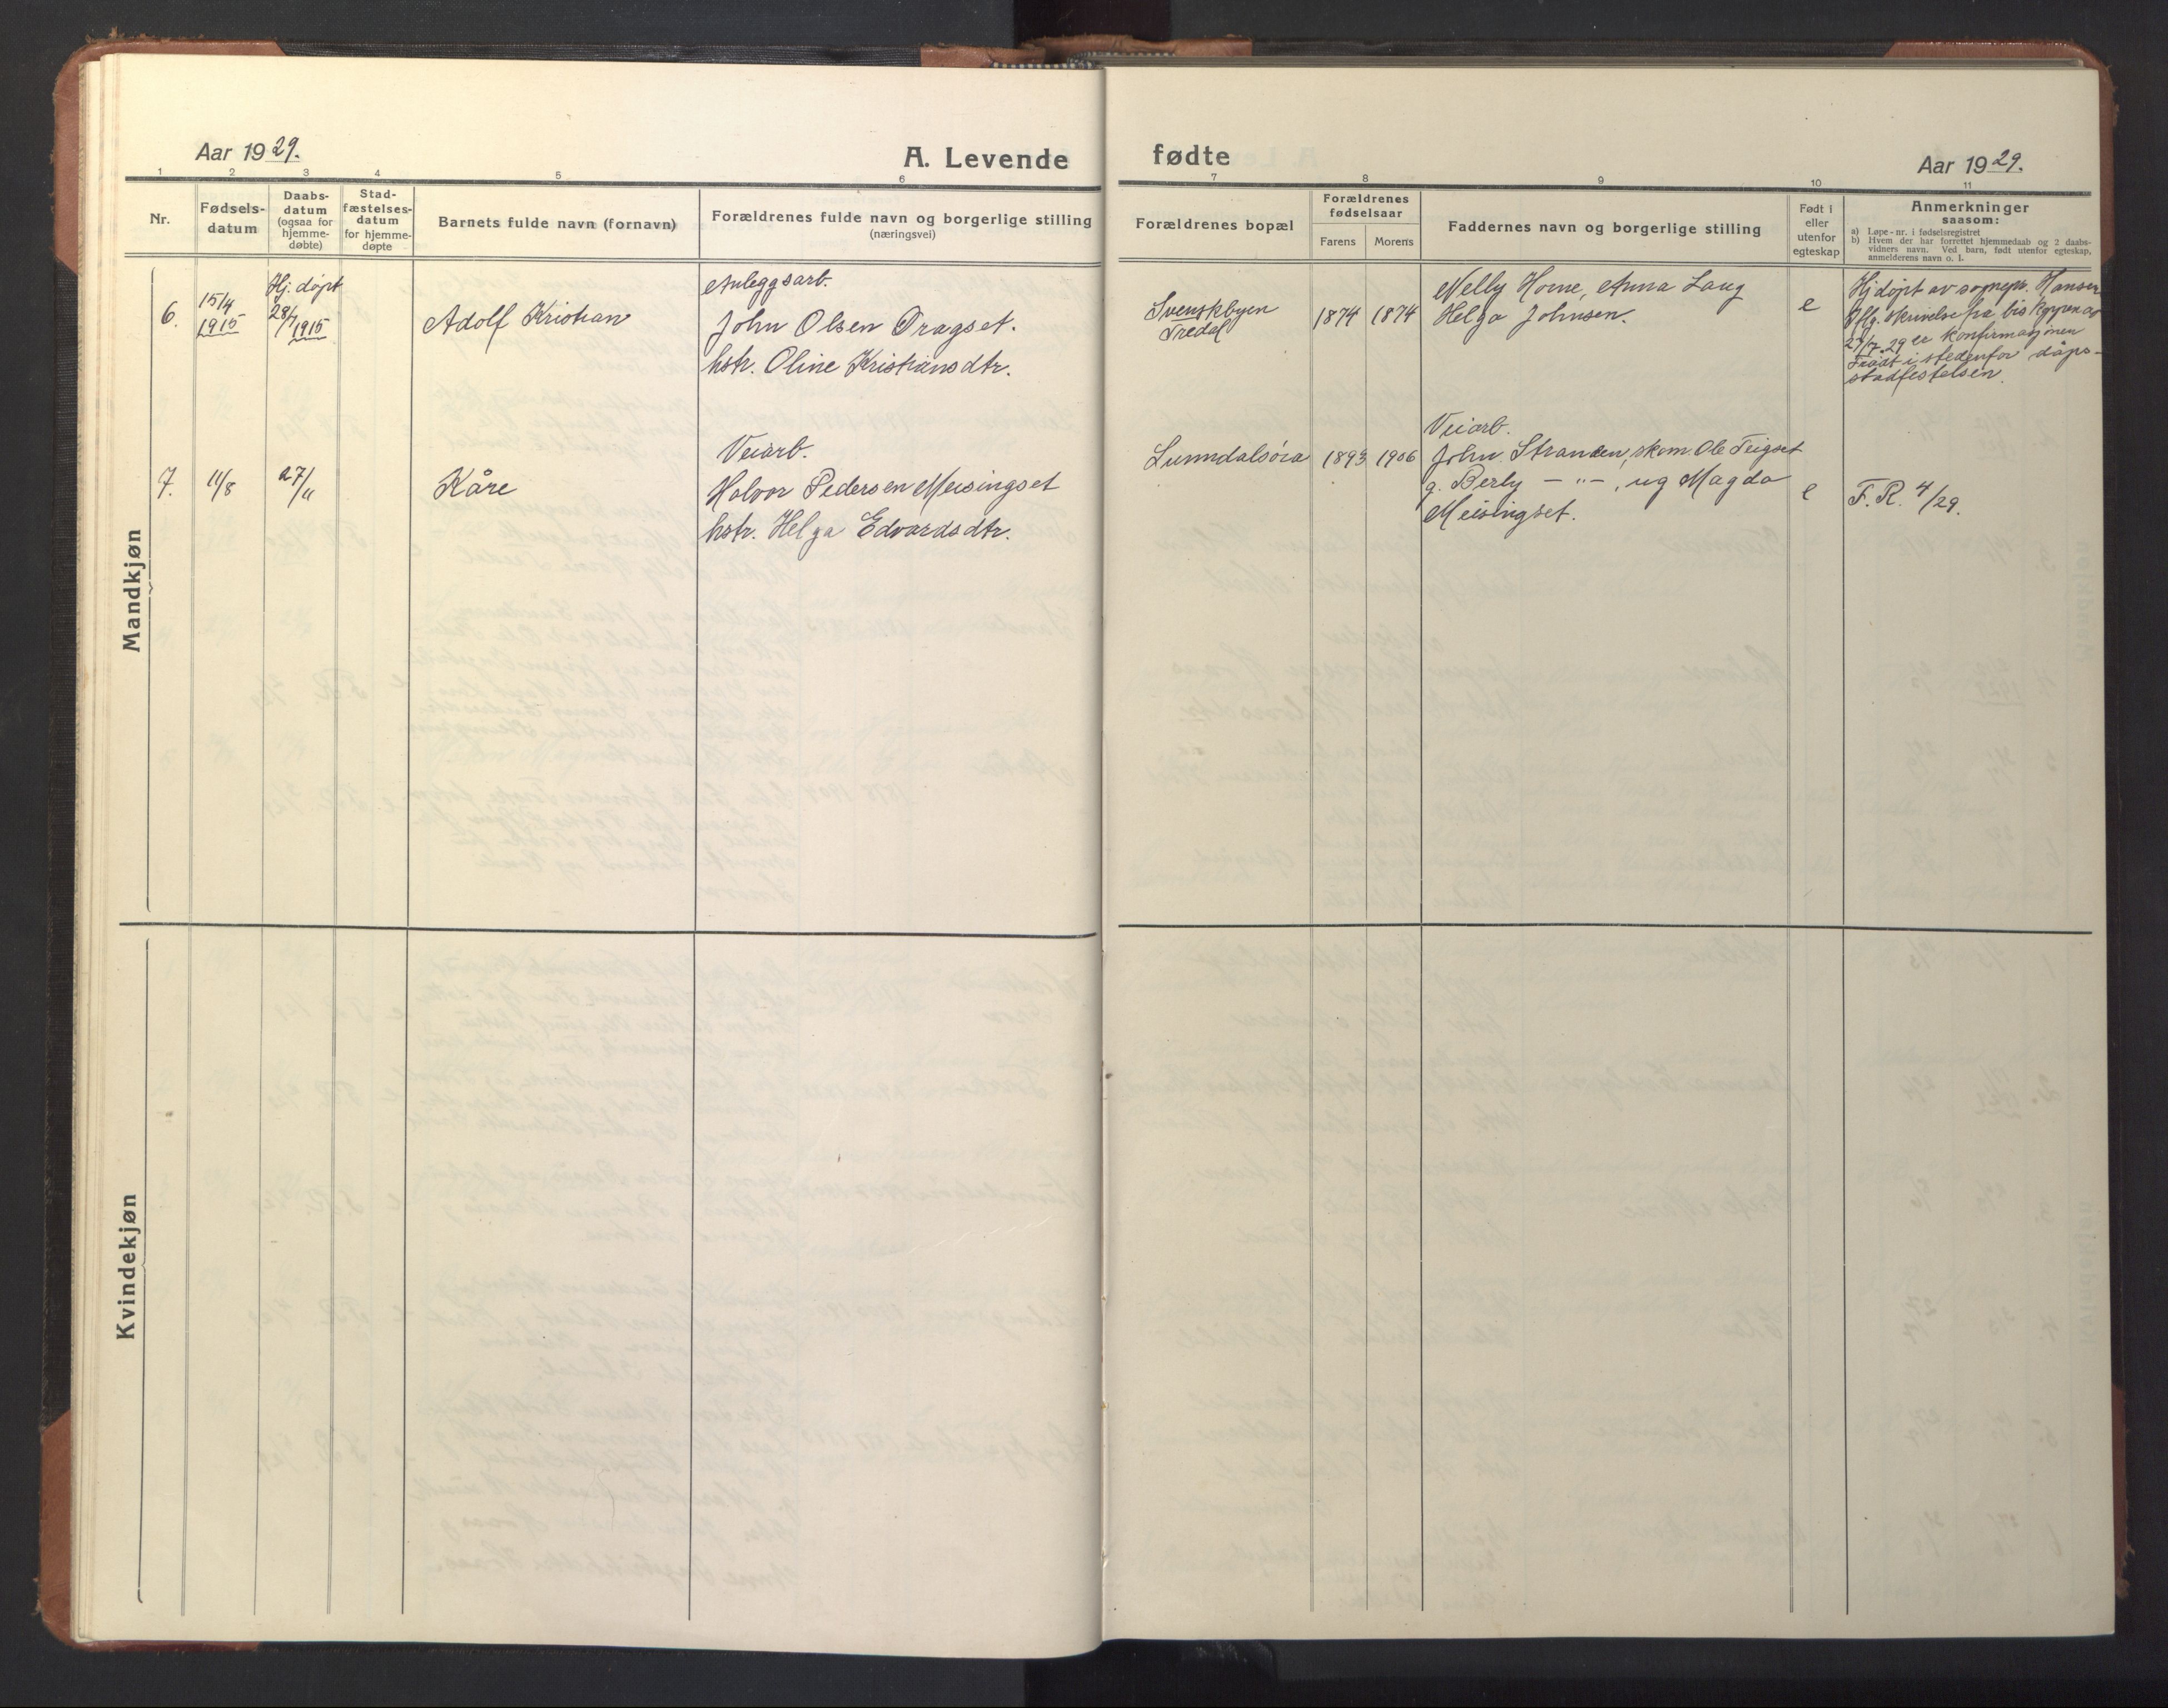 Aar 1929.
A. Levende fødte
Aar 1929.
1 2 3 4 5 6 7 8 9 10 11
Nr.
Fødsels-
datum
Daabs-
datum
(ogsaa for
hjemme-
døbte)
Stad-
fæstelses-
datum
for hjemme-
døpte
Barnets fulde navn (fornavn)
Forældrenes fulde navn og borgerlige stilling
(næringsvei)
Forældrenes bopæl
Forældrenes
fødselsaar
Farens Morens
Faddernes navn og borgerlige stilling
Født i
eller
utenfor
egteskap
Anmerkninger
saasom:
a) Løpe-nr. i fødselsregistret
b) Hvem der har forrettet hjemmedaab og 2 daabs-
vidners navn. Ved barn, født utenfor egteskap,
anmelderens navn o. l.
Mandkjøn
6.
15/4
1915
Hj. døpt
28/7
1915
Adolf Kristian
Anleggsarb.
John Olsen Dragset.
hstr. Oline Kristiansdtr.
Svenskbyen
Tredal
1874 1874
Nelly Horne, Anna Laug
Helga Johnsen.
e
Hj døpt av sognepr. Hansen
Iflg. skrivelse fra biskoppen av
27/7. 29 er konfirmasjonen
Trådt i stedenfor dåps-
stadfestelsen.
7.
11/8
27/11
Kåre
Veiarb.
Halvor Pedersen Meisingset
hstr. Helga Edvardsdtr.
Sunndalsøra
1893 1906
Veiarb.
John Stranden, skom. Ole Teigset
g. Berly — " —, ug Magda
Meisingset.
e
F. R. 4/29.
Kvindekjøn